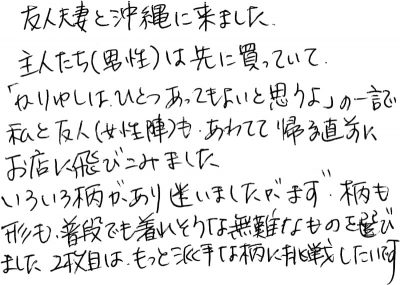 友人夫妻と沖縄に来ました.
主人たち(男性)は先に買っていて.
「かりゆしは、ひとつあってもよいと思うよ」の一言で
私と友人(女性陣)も、あわてて帰る直前に
お店に飛びこみました
いろいろ柄があり迷いましたが、まず、柄も
形も、普段でも着れそうな無難なものを選び
ました 2枚目は、もっと派手な柄に挑戦したいです